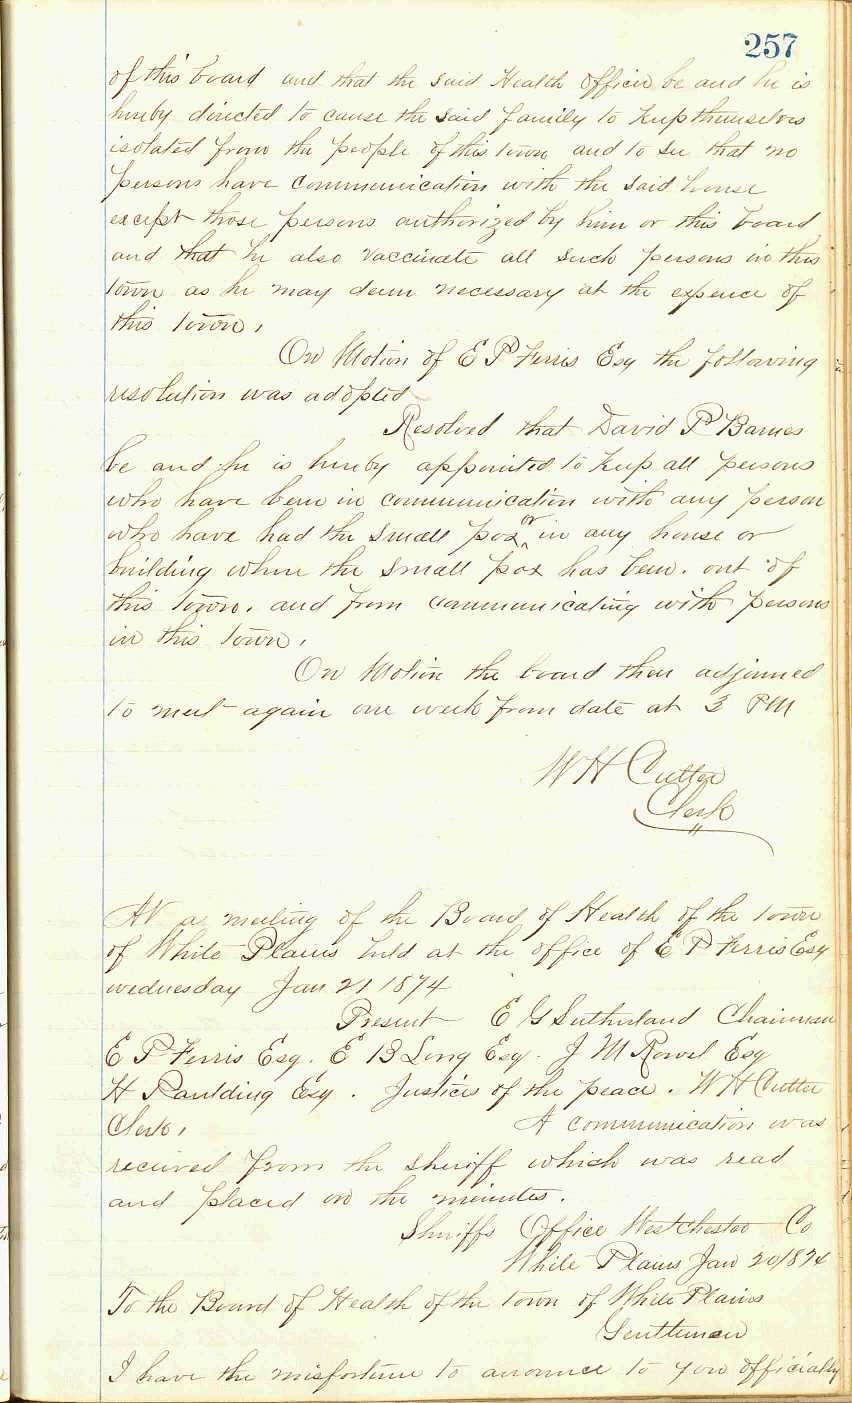 257
of this board and that the said Health Officer be and he is
hereby directed to cause the said family to keep themselves
isolated from the people of this town and to see that no
persons have communication with the said house
except those persons authorized by him or this board
and that he also vaccinate all such persons in this
town as he may deem necessary at the expence of
this town,
On Motion of E P Ferris Esq the following
resolution was adopted
Resolved that David P Barnes
be and he is hereby appointed to keep all persons
who have been in communication with any person
who have had the small pox or in any house or
building where the small pox has been. out of
this town. and from communicating with persons
in this town,
On Motion the board then adjourned
to meet again one week from date at 3 PM
W H Cutter
Clerk
At a meeting of the Board of Health of the town
of White Plains held at the office of E P Ferris Esq
wednesday Jan 21 1874
Present E G Sutherland Chairman
E P Ferris Esq. E B Long Esq. J M Rowel Esq
H Paulding Esq. Justices of the peace. W H Cutter
Clerk, A communication was
received from the sheriff which was read
and placed on the minutes.
Sheriffs Office Westchester Co
White Plains Jan 20/874
To the Board of Health of the town of White Plains
Gentlemen
I have the misfortune to anounce to you officially